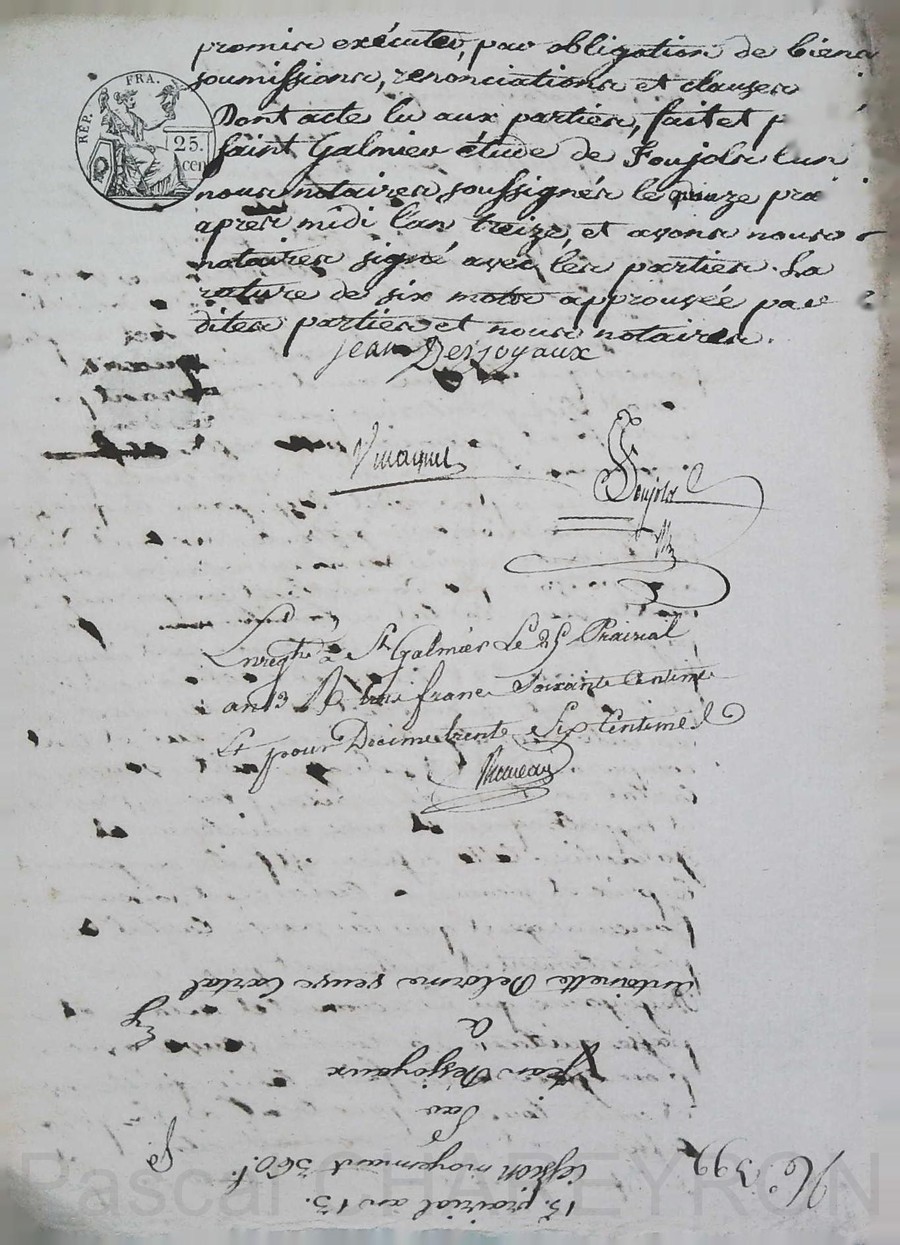 promis exécuter, par obligation de biens
soumissions, renonciations et clauses
Dont acte lu aux parties, fait et
saint Galmier étude de Foujols l'un
nous notaires soussignés le quinze
apres midi l'an treize, et avons nous
notaires signé avec les parties. La
rature de six mots approuvée par
dites parties et nous notaires.
RÉP. FRA.
25.
cen
jean Desjoyaux
Foujols
Enregtré à St Galmier Le 25 Prairial
an 13 R trois francs Soixante Centimes
Et pour Decime trente Six Centimes
No. 399
15. prairial an 13.
Cession moyennant 360 f.
Par
Jean Desjoyaux
A
antoinette Delorme veuve
Pascal CHAPEYRON